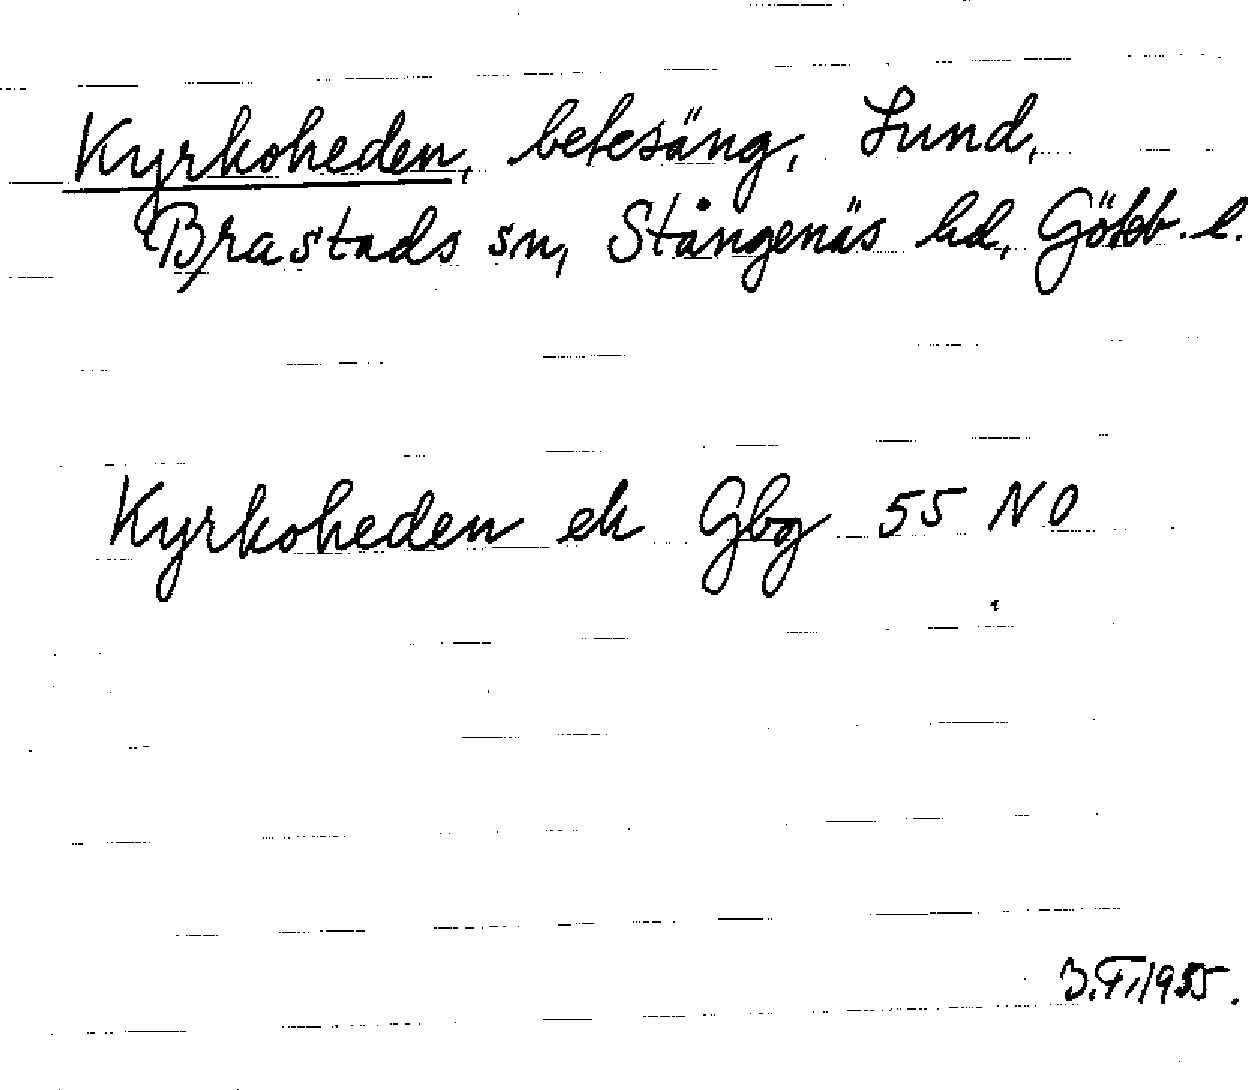 Kyrkoheden, betesäng, Lund,
Brastads sn, Stångenäs hd, Götbb. l.
Kyrkoheden ek Gbg 55 NO